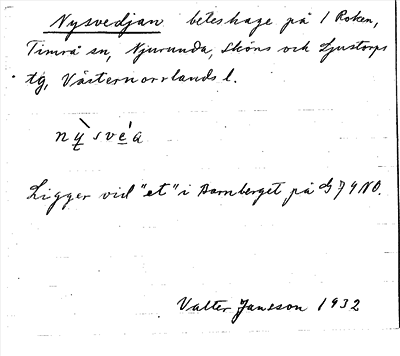 Nysvedjan beteshage på 1 Roken,
Timrå sn, Njurunda, Sköns och Ljustorps
tg, Västernorrlands l.
nỳsvéa
Ligger vid "et" i Barnberget på G74NO.
Valter Jansson 1932